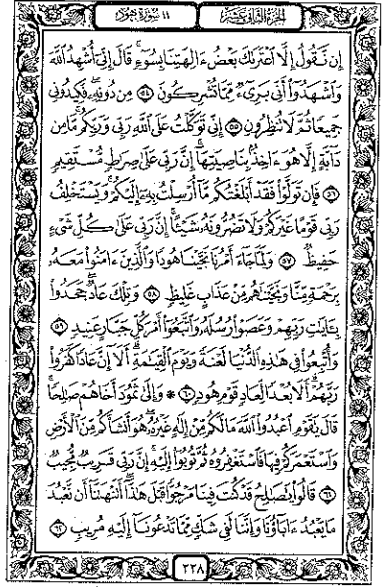 ١١ سورة هود الجزء الثاني عشر
إِن نَّقُولُ إِلَّا ٱعْتَرَىٰكَ بَعْضُ ءَالِهَتِنَا بِسُوٓءٍۗ قَالَ إِنِّىٓ أُشْهِدُ ٱللَّهَ
وَٱشْهَدُوٓا۟ أَنِّى بَرِىٓءٌ مِّمَّا تُشْرِكُونَ ٥٤ مِن دُونِهِۦۖ فَكِيدُونِى
جَمِيعًا ثُمَّ لَا تُنظِرُونِ ٥٥ إِنِّى تَوَكَّلْتُ عَلَى ٱللَّهِ رَبِّى وَرَبِّكُمۚ مَّا مِن
دَآبَّةٍ إِلَّا هُوَ ءَاخِذٌۢ بِنَاصِيَتِهَآۚ إِنَّ رَبِّى عَلَىٰ صِرَٰطٍ مُّسْتَقِيمٍ
٥٦ فَإِن تَوَلَّوْا۟ فَقَدْ أَبْلَغْتُكُم مَّآ أُرْسِلْتُ بِهِۦٓ إِلَيْكُمْۚ وَيَسْتَخْلِفُ
رَبِّى قَوْمًا غَيْرَكُمْ وَلَا تَضُرُّونَهُۥ شَيْـًٔاۚ إِنَّ رَبِّى عَلَىٰ كُلِّ شَىْءٍ
حَفِيظٌ ٥٧ وَلَمَّا جَآءَ أَمْرُنَا نَجَّيْنَا هُودًا وَٱلَّذِينَ ءَامَنُوا۟ مَعَهُۥ
بِرَحْمَةٍ مِّنَّا وَنَجَّيْنَٰهُم مِّنْ عَذَابٍ غَلِيظٍ ٥٨ وَتِلْكَ عَادٌۖ جَحَدُوا۟
بِـَٔايَٰتِ رَبِّهِمْ وَعَصَوْا۟ رُسُلَهُۥ وَٱتَّبَعُوٓا۟ أَمْرَ كُلِّ جَبَّارٍ عَنِيدٍ ٥٩
وَأُتْبِعُوا۟ فِى هَٰذِهِ ٱلدُّنْيَا لَعْنَةً وَيَوْمَ ٱلْقِيَٰمَةِۗ أَلَآ إِنَّ عَادًا كَفَرُوا۟
رَبَّهُمْۗ أَلَا بُعْدًا لِّعَادٍ قَوْمِ هُودٍ ٦٠ * وَإِلَىٰ ثَمُودَ أَخَاهُمْ صَٰلِحًاۚ
قَالَ يَٰقَوْمِ ٱعْبُدُوا۟ ٱللَّهَ مَا لَكُم مِّنْ إِلَٰهٍ غَيْرُهُۥۖ هُوَ أَنشَأَكُم مِّنَ ٱلْأَرْضِ
وَٱسْتَعْمَرَكُمْ فِيهَا فَٱسْتَغْفِرُوهُ ثُمَّ تُوبُوٓا۟ إِلَيْهِۚ إِنَّ رَبِّى قَرِيبٌ مُّجِيبٌ
٦١ قَالُوا۟ يَٰصَٰلِحُ قَدْ كُنتَ فِينَا مَرْجُوًّا قَبْلَ هَٰذَآۖ أَتَنْهَىٰنَآ أَن نَّعْبُدَ
مَا يَعْبُدُ ءَابَآؤُنَا وَإِنَّنَا لَفِى شَكٍّ مِّمَّا تَدْعُونَآ إِلَيْهِ مُرِيبٍ ٦٢
٢٢٨